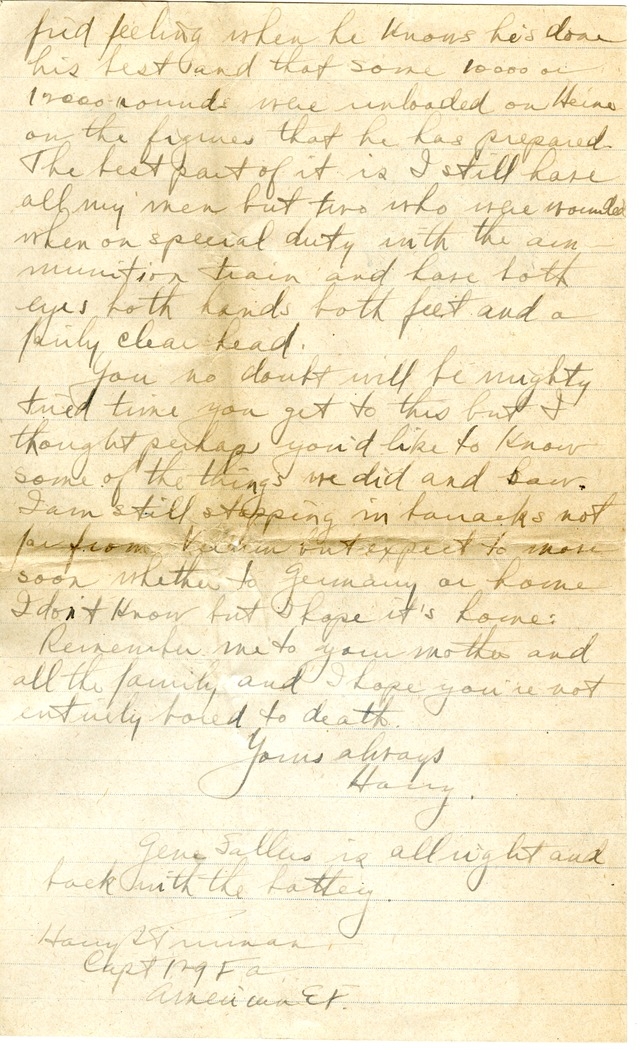 fied feeling when he knows he's done
his best and that some 10000 or
12000 rounds were unloaded on Heine
on the figures that he has prepared.
The best part of it is I still have
all my men but two who were wounded
when on special duty with the am-
munition train and have both
eyes both hands both feet and a
fairly clear head.
You no doubt will be mighty
tired time you get to this but I
thought perhaps you'd like to know
some of the things we did and saw.
I am still stopping in barracks not
far from Verdun but expect to move
soon whether to Germany or home
I don't know but I hope it's home.
Remember me to your mother and
all the family and I hope you're not
entirely bored to death.
Yours always
Harry.
Gene Sallee is all right and
back with the battery.
Harry S Truman.
Capt 129 F a
American E F.